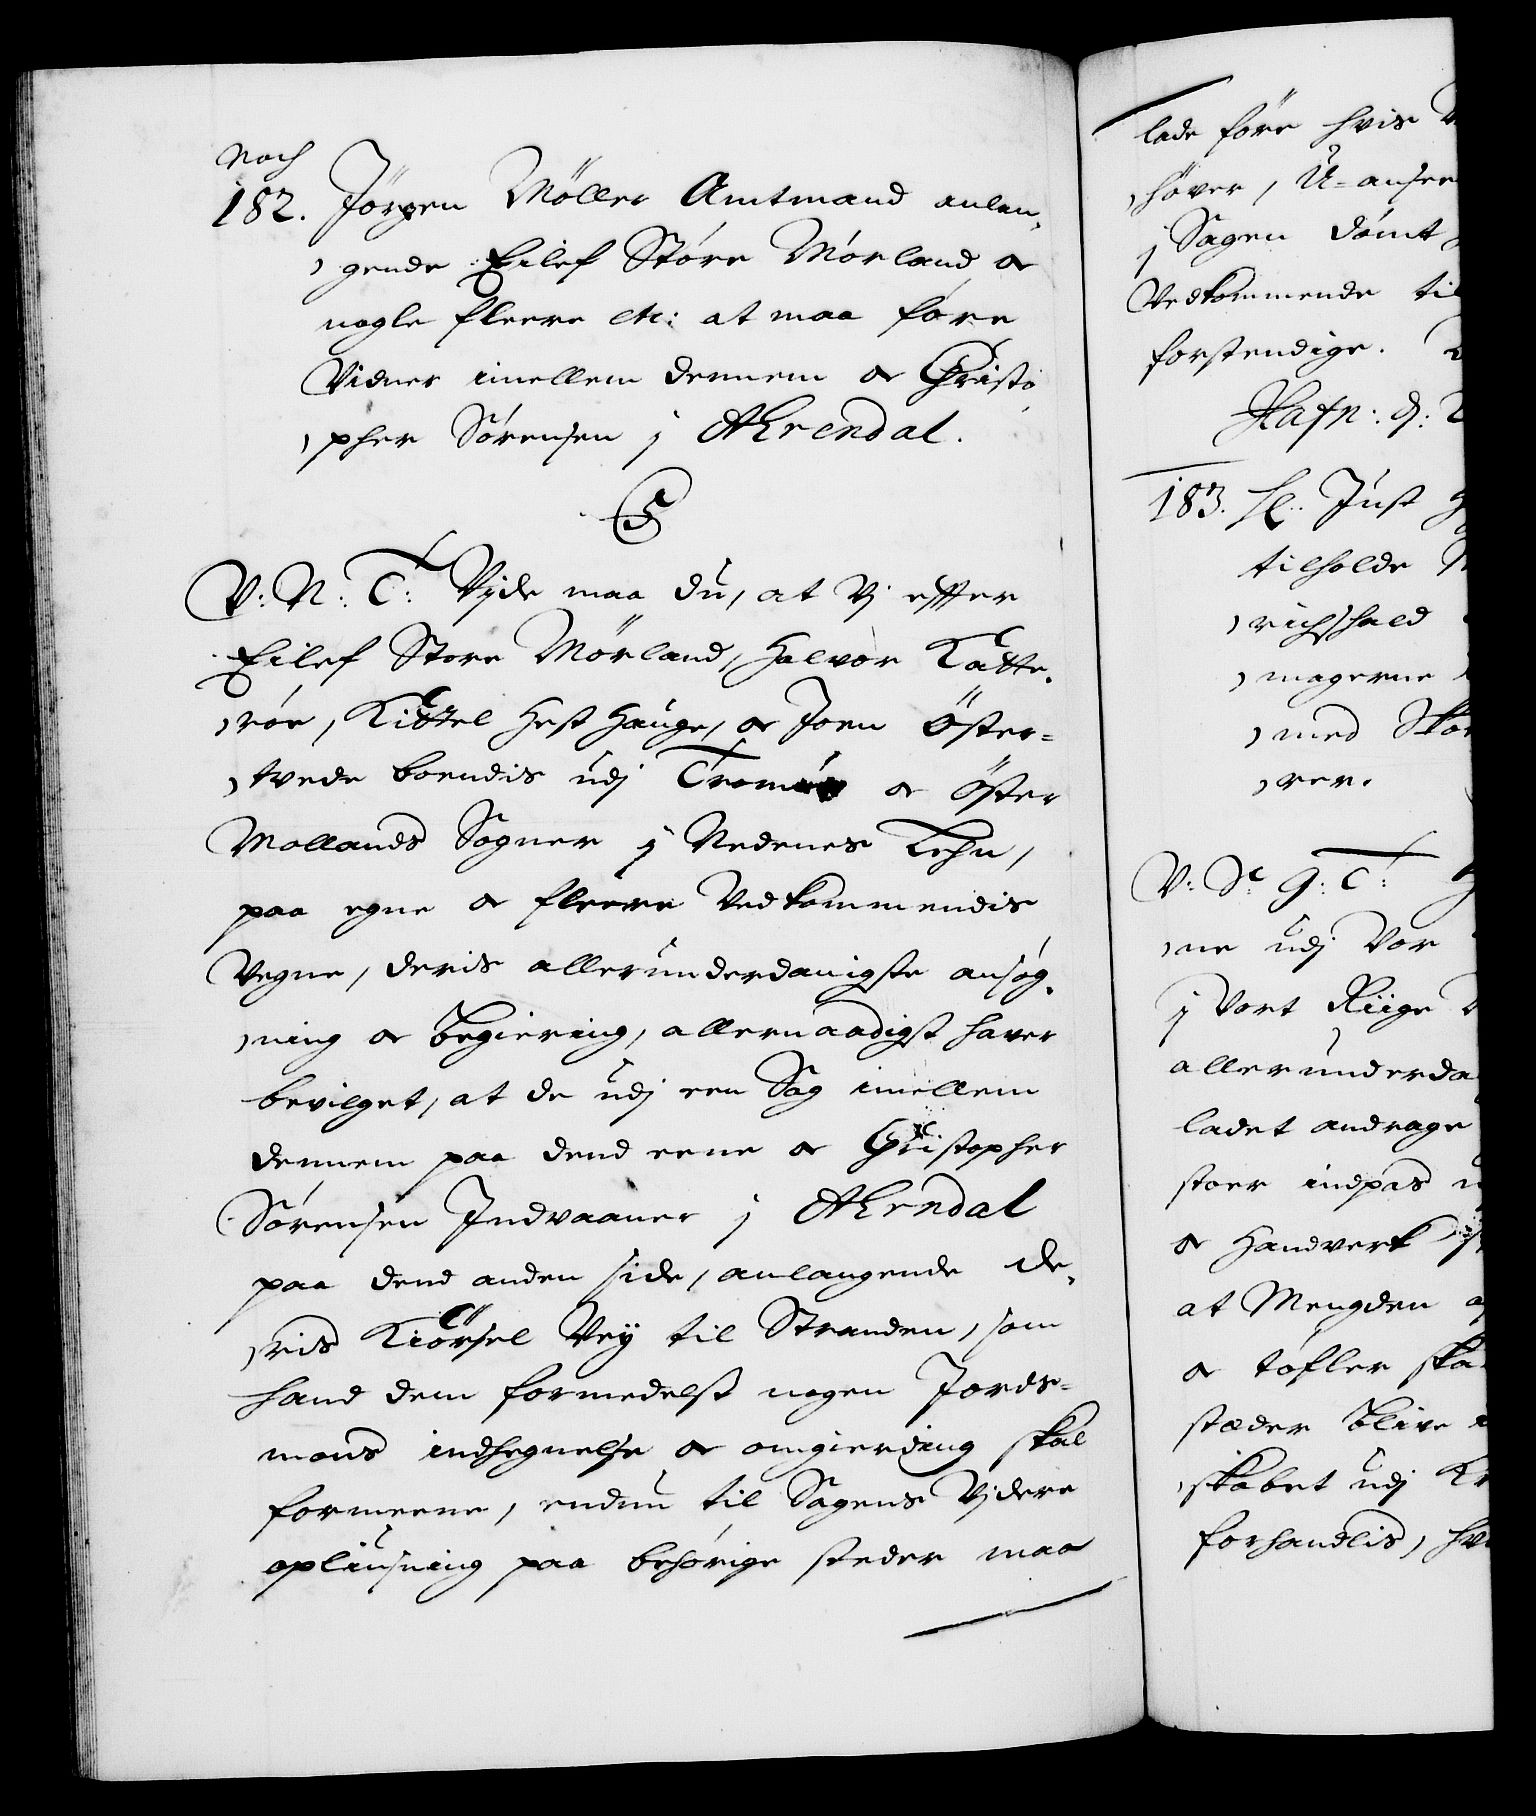 Noch
182. Jörgen Möller Amtmand anlan,
,gende Eilef Störe Mörland, oc
nogle fleere etc: at maa före
Vidner imellem dennem oc Christo
,pher Sörensen j AErendal.
C5
V: N: T: Vide maa du, at Vj effter
Eilef Store Mörland, Halvor Katte,
,röe, Kittel Hesthauge, oc Joen Öster=
,tvede boendis udj oc Öster
Mollands Sogner j Nedenes Lehn,
paa egne oc fleere Vedkommendis
Vegne, deris allerunderdanigste ansög,
,ning oc begiering, allernaadigst haver
bevilget, at de udj een Sag imellem
dennem paa dend eene oc Christopher
Sörensen Indvaaner j AErendal
paa dend anden side, anlangende de,
,ris Kiörsel Vey til Stranden, som
hand dem formedelst nogen Jords=
mons indhegnelse oc omgierding skal
formeene, endnu til Sagens Videre
opliusning paa behörige steder maa
lade före hvis
,höver, U=anseet
j Sagen dömt
Vedkommende til
forstendige.
Hafn: d:
183. Hl. Just
tilholde
,richshald
,magerne
,med Sko
,rer.
V: Sc G: T:
,ne udj Vor
j Vort Riige
allerunderda
ladet andrage
stoer indpas
oc Handverk
at Mengden
oc töfler ska
stæder blive
,skabet udj
forhandlis, hv